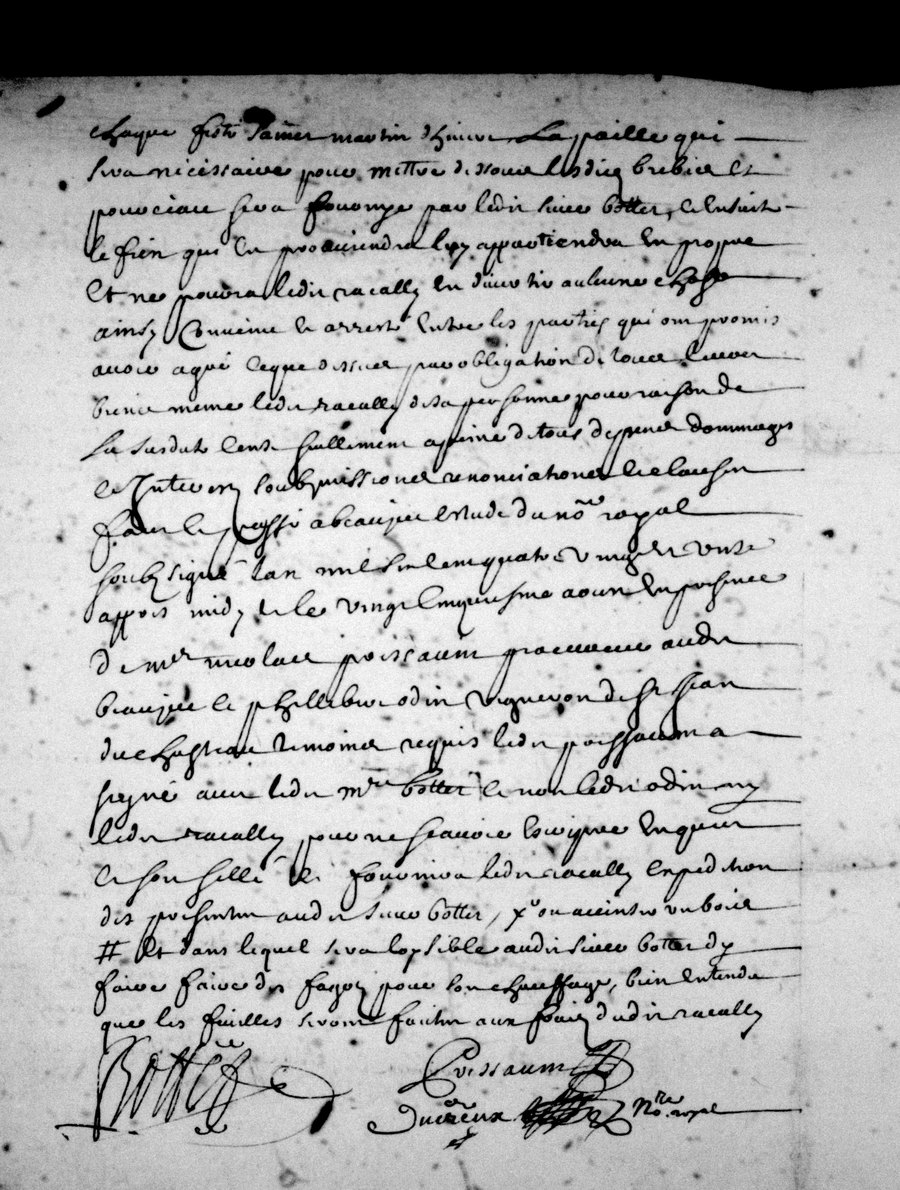 chaque feste Sainct martin d'hiver La paille qui
sera nécéssaire pour mettre dessoubz lesdites brebis et
pourceaux sera fournye par ledit sieur bottet, et ensuite
le fien qui en proviendra luy appartiendra en propre
Et ne pourra ledit racally en divertir aulcune chose
ainsy Convenu et arresté Entre les parties qui ont promis
avoir agreé ce que dessus par obligation de tous leurs
biens meme ledit racally de sa personne pour raison de
La susdite Cense seullement a peine de tous despens dommages
et Interestz soubzmissions renonciations et clauses
fait et passé a beaujeu estude du no.re royal
soubzsigné Lan mil six cent quatre vingt et
appres midy et le vingt cinquiesme aoust En presence
de m.re nicolas poissaum praticien audit
beaujeu et phillibert odin vigneron de st Jean
du chasteau temoins requis ledit poissaum a
signé avec ledit m.re bottet et non ledit odin ny
ledit racally pour ne scavoir Escripre Enquis
et sera ledit racally expedition
des presentes audit sieur bottet,
# Et dans lequel sera loysible audit sieur bottet dy
faire faire des fagotz pour son chauffage, bien Entendu
que les feuilles seront faittes aux frais dudit racally
Bottet Poissaum
Ducreux No.re royal